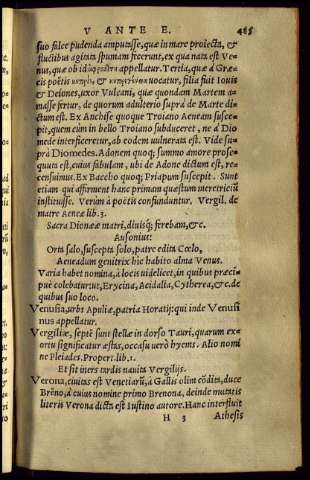 V ANTE E. 485
suo falce pudenda amputasse, quæ in mare proiecta, &
fluctibus agitata spumam fecerunt, ex qua nata est Ve-
nus, quæ ob id appellatur. Tertia, quæ à Græ-
cis poëtis uocatur, filia fuit Iouis
& Deiones, uxor Vulcani, quæ quondam Martem a-
masse fertur, de quorum adulterio suprà de Marte di-
ctum est. Ex Anchise quoque Troiano Aeneam susce-
pit, quem cùm in bello Troiano subduceret, ne à Dio-
mede interficeretur, ab eodem uulnerata est. Vide su-
prà Diomedes. Adonem quoq; summo amore prose-
quuta est, cuius fabulam, ubi de Adone dictum est, re-
censuimus. Ex Baccho quoq; Priapum suscepit. Sunt
etiam qui affirment hanc primam quæstum meretriciũ
instituisse. Verùm à poëtis confunduntur. Vergil. de
matre Aeneæ lib.3.
Sacra Dioneæ matri, diuisq; ferebam, &c.
Ausonius:
Orta salo, suscepta solo, patre edita Cœlo,
Aeneadum genitrix hic habito alma Venus.
Varia habet nomina, à locis uidelicet, in quibus præci-
puè colebatur, ut, Erycina, Acidalia, Cytherea, &c. de
quibus suo loco.
Venusia, urbs Apuliæ, patria Horatij: qui inde Venusi
nus appellatur.
Vergiliæ, septẽ sunt stellæ in dorso Tauri, quarum ex-
ortu significatur æstas, occasu verò hyems. Alio nomi
ne Pleiades. Propert. lib.1.
Et sit iners tardis nauita Vergilijs.
Verona, ciuitas est Venetiarũ, à Gallis olim cõdita, duce
Brẽno, à cuius nomine primo Brenona, deinde mutatis
literis Verona dicta est Iustino autore. Hanc interfluit
H 3 Athesis